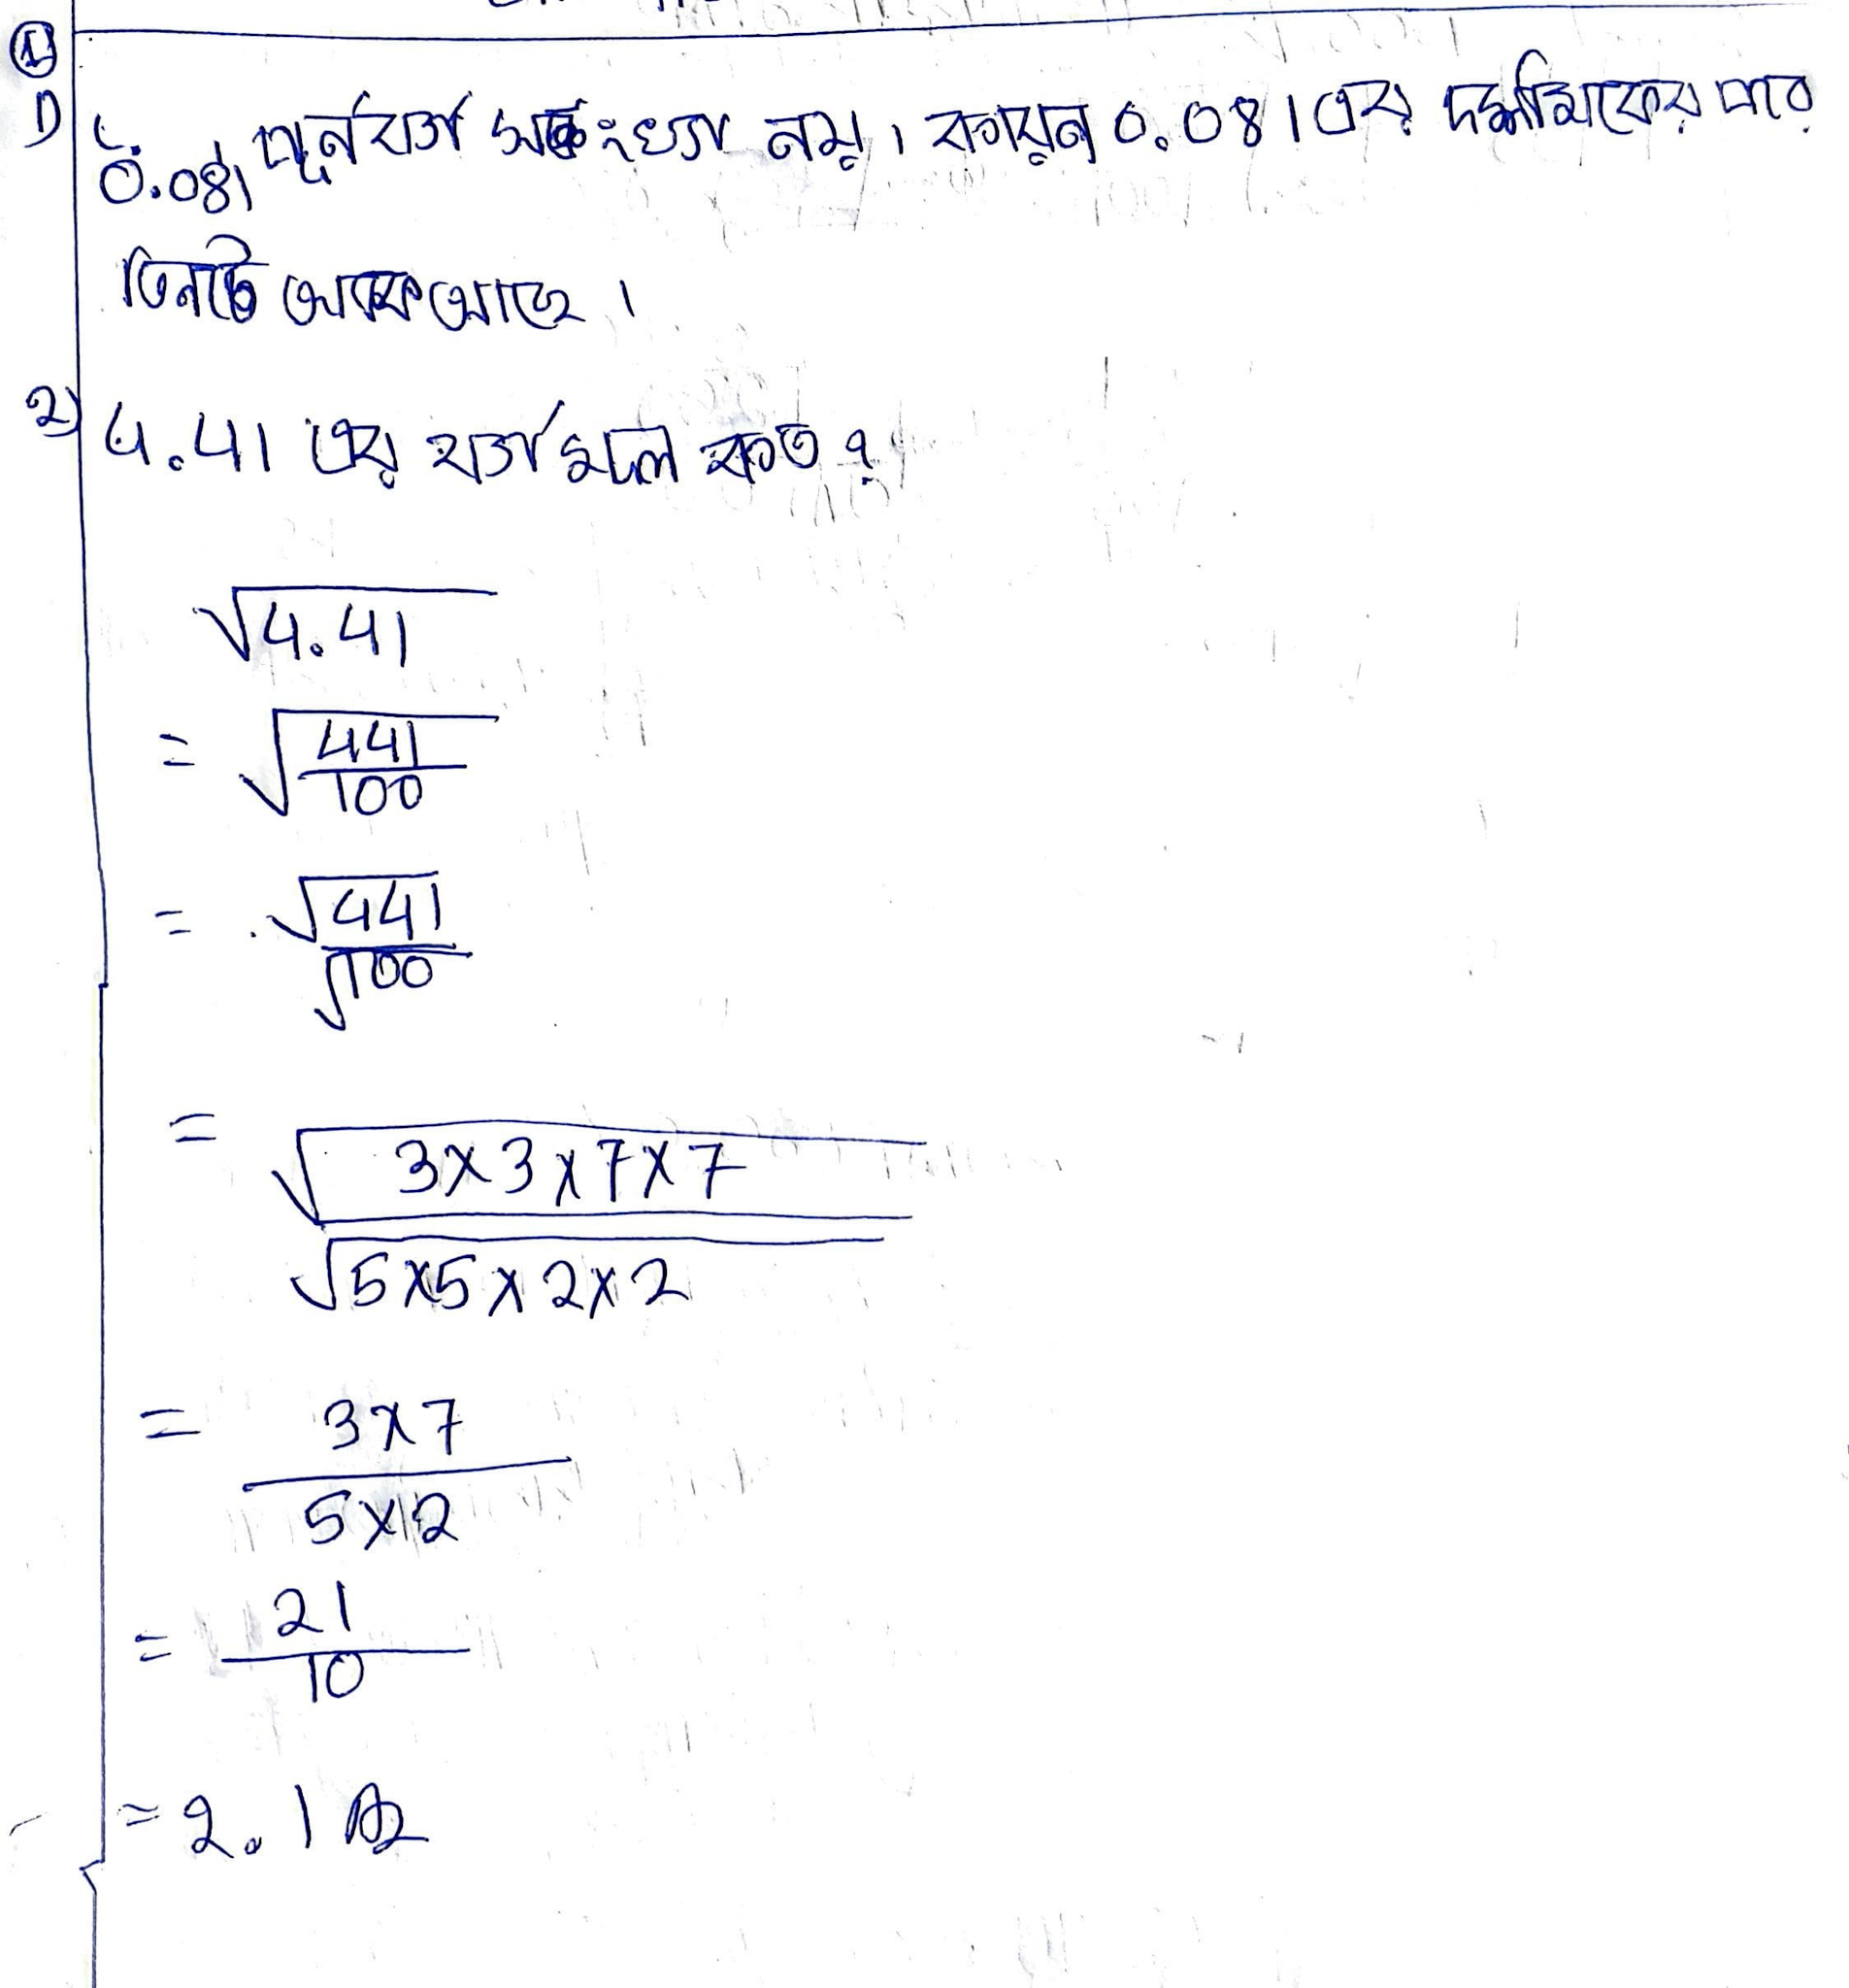 ①
1) 0.081 পূর্নবর্গ সংখ্যা নয়। কারন 0.081 এর দশমিকের পরে
তিনটি অংক আছে।
2) 4.41 এর বর্গমূল কত?
√4.41
= √(441/100)
= √441/√100
= √(3×3×7×7)/√(5×5×2×2)
= (3×7)/(5×2)
= 21/10
= 2.1